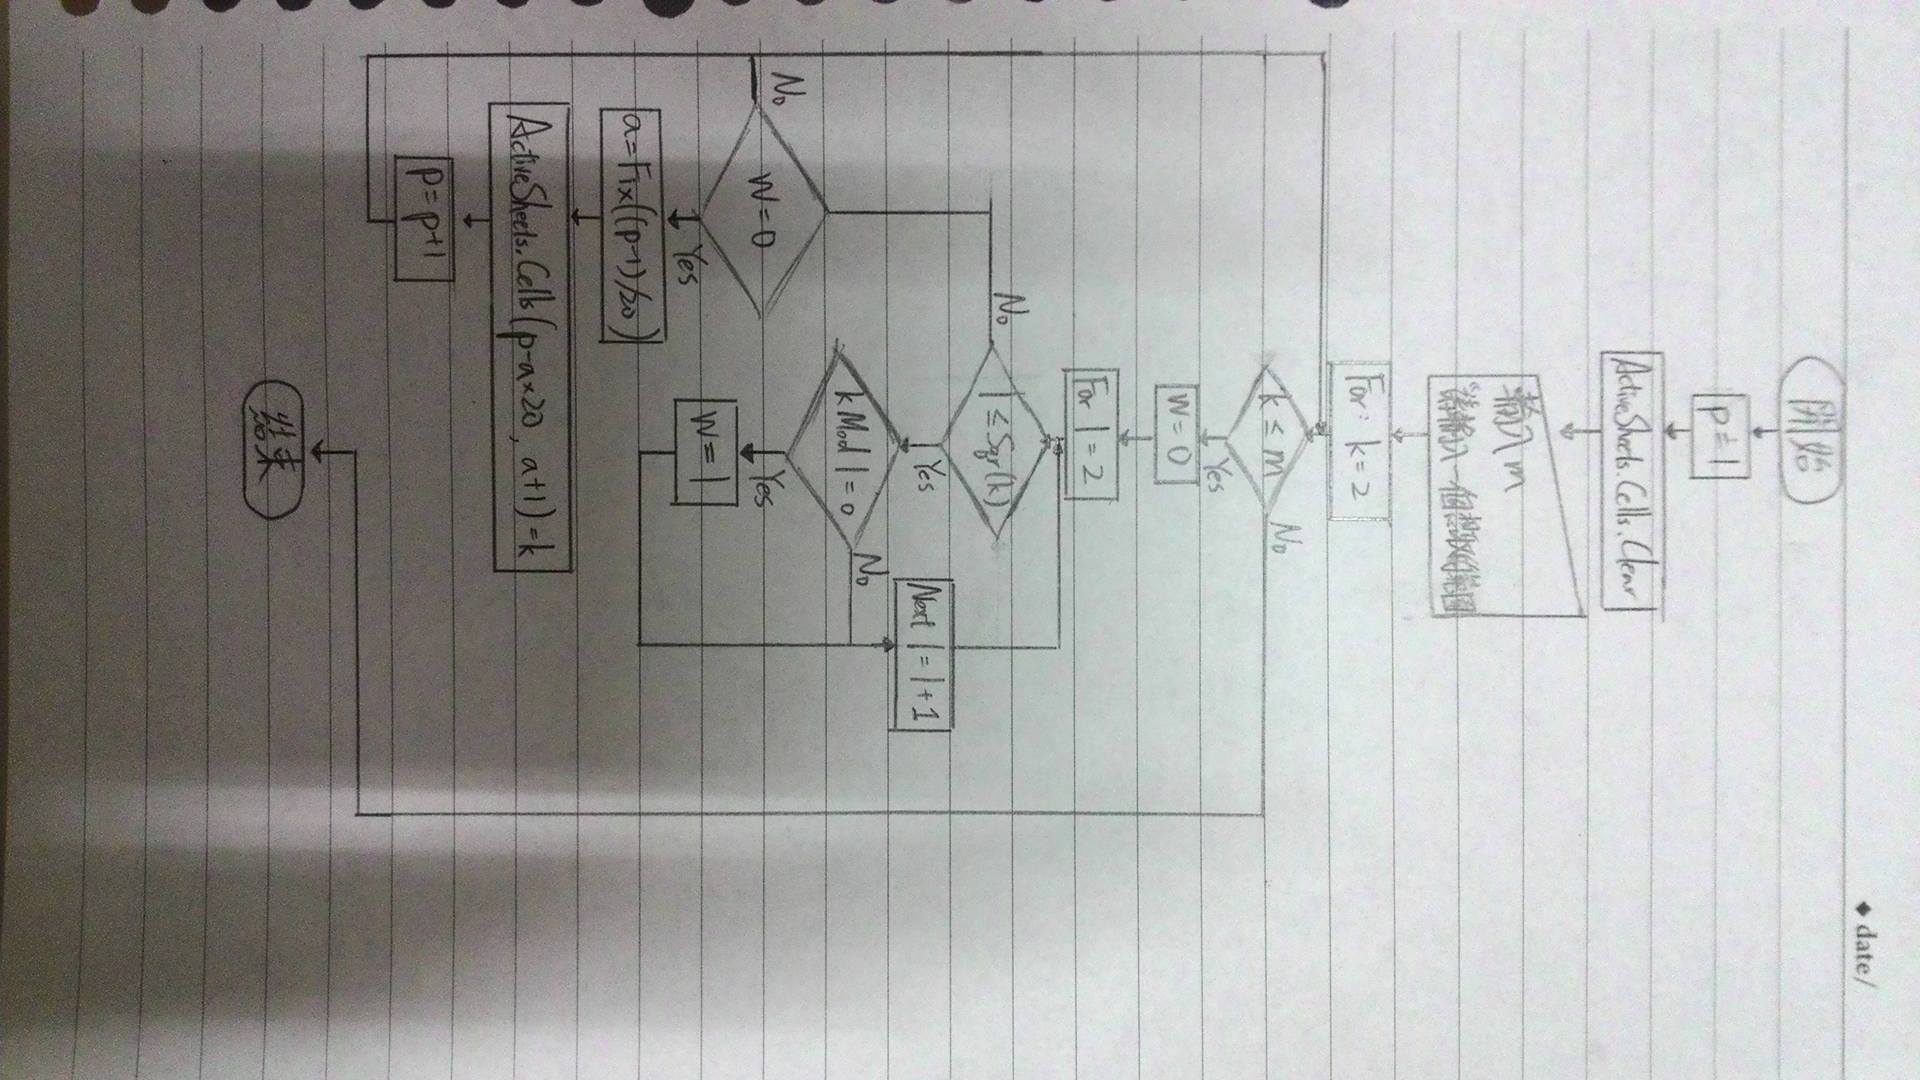 ◆ date/
開始
p=1
ActiveSheets.Cells.Clear
輸入m
"請輸入一個
For: k=2
k≤m
No
Yes
W=0
For l=2
l≤Sqr(k)
No
Yes
k Mod l=0
No
Yes
Next l=l+1
W=1
W=0
No
Yes
a=Fix((p-1)/20)
ActiveSheets.Cells(p-a×20, a+1)=k
p=p+1
結束